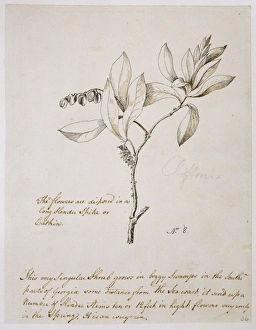 The flowers are disposed in a
long slender Spike or
Catkin.
N°. 8.
This very singular Shrub grows in boggy Swamps in the South
parts of Georgia some distance from the Sea coast, it sends up a
Number of slender Stems ten or high, flowers very early
in the Spring,